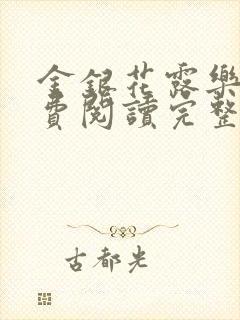 金銀花露樂
費閱讀完整
古都光